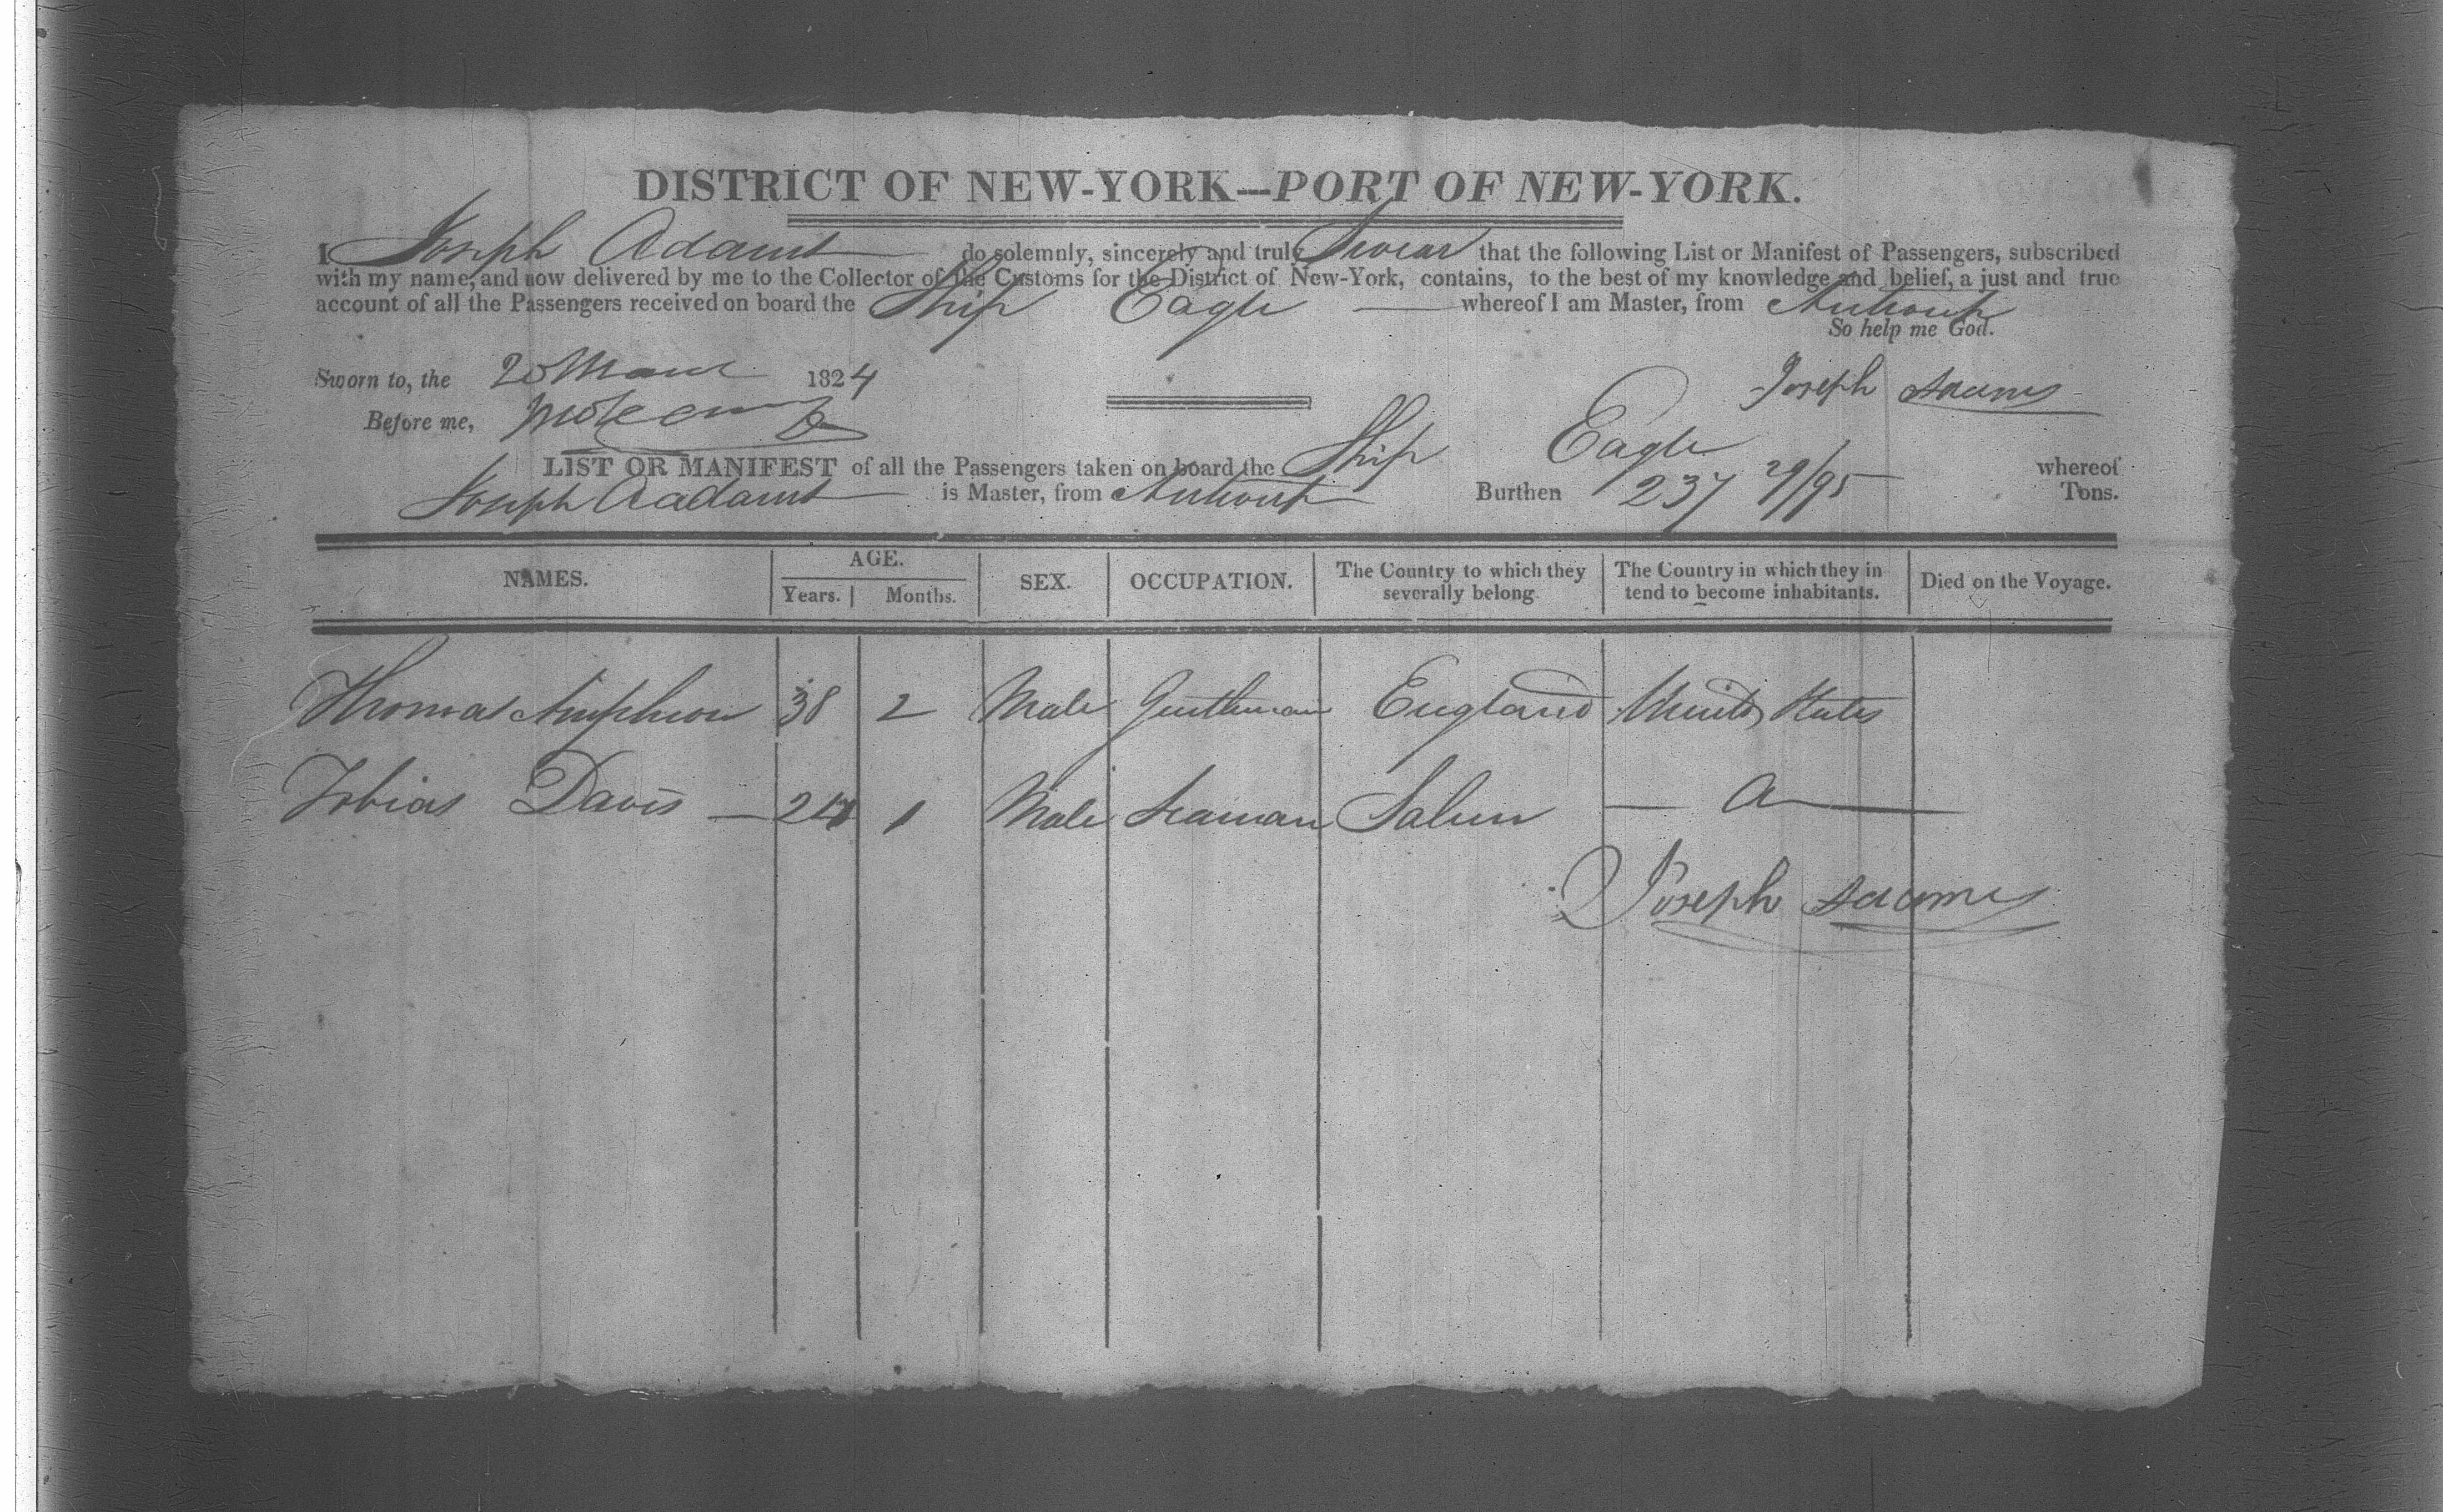 DISTRICT OF NEW-YORK—PORT OF NEW-YORK.
I Joseph Adams do solemnly, sincerely and truly Swear that the following List or Manifest of Passengers, subscribed
with my name, and now delivered by me to the Collector of the Customs for the District of New-York, contains, to the best of my knowledge and belief, a just and true
account of all the Passengers received on board the Ship Eagle whereof I am Master, from
So help me God.
Sworn to, the 20 1824
Joseph Adams
Before me,
LIST OR MANIFEST of all the Passengers taken on board the Ship Eagle whereof
Joseph Aadams is Master, from Burthen 237 29/95 Tons.
NAMES. AGE. Years. Months. SEX. OCCUPATION. The Country to which they severally belong. The Country in which they in tend to become inhabitants. Died on the Voyage.
Thomas 38 2 Male Gentleman England United States
Tobias Davis 1 Male Seaman Salem
Joseph Adams